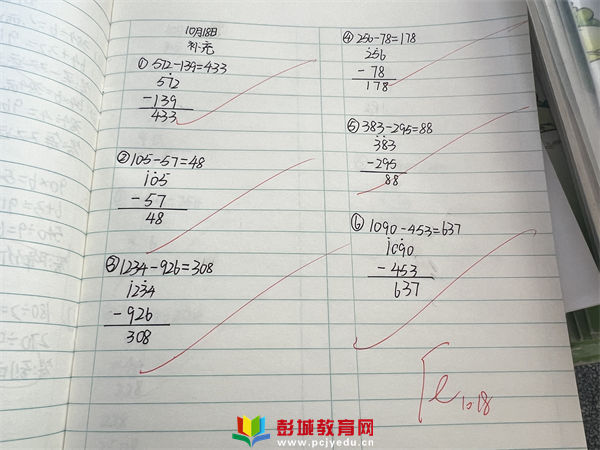 10月18日
补充
① 572-139=433
572
-139
433
② 105-57=48
105
-57
48
③ 1234-926=308
1234
-926
308
④ 256-78=178
256
-78
178
⑤ 383-295=88
383
-295
88
⑥ 1090-453=637
1090
-453
637
10.18
彭城教育网
www.pcjyedu.cn